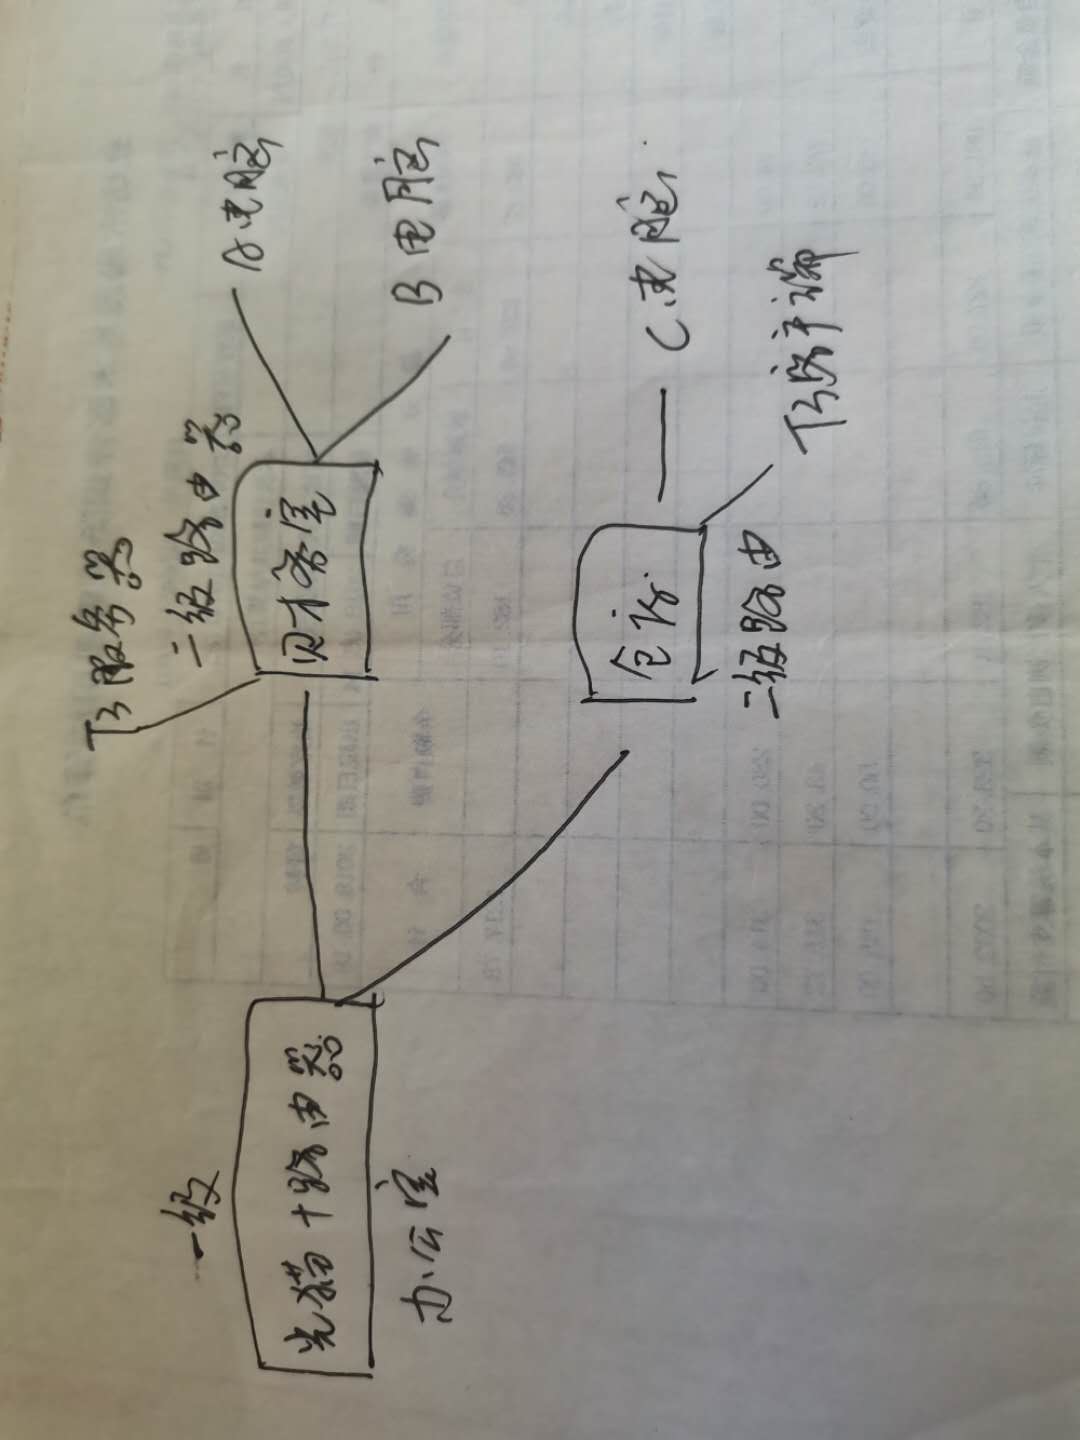 一级
光猫+路由器
办公室
T3服务器
二级路由器
财务室
A电脑
B电脑
仓
二级路由
C电脑
T3